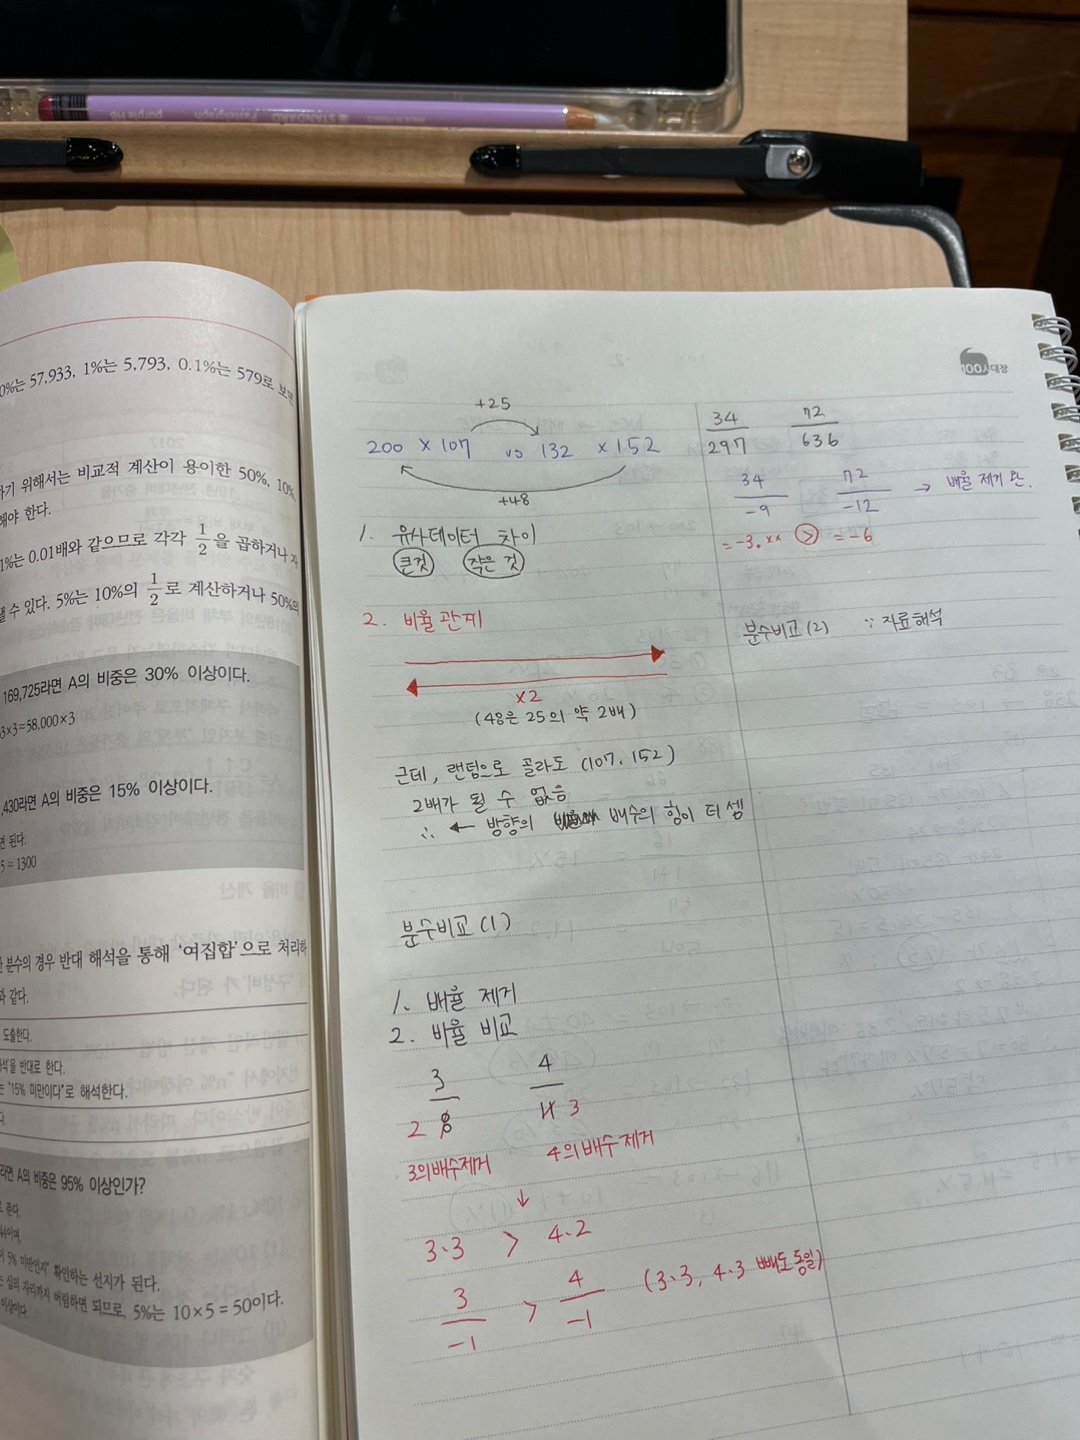 0%는 57,933, 1%는 5,793, 0.1%는 579로 보면
하기 위해서는 비교적 계산이 용이한 50%, 10%,
해야 한다.
1%는 0.01배와 같으므로 각각 1/2을 곱하거나
낼 수 있다. 5%는 10%의 1/2로 계산하거나 50%의
169,725라면 A의 비중은 30% 이상이다.
3×3≈58,000×3
,430라면 A의 비중은 15% 이상이다.
면 된다.
5 = 1300
분수의 경우 반대 해석을 통해 '여집합'으로 처리하
과 같다.
도출한다.
석'을 반대로 한다.
는 "15% 미만이다"로 해석한다.
라면 A의 비중은 95% 이상인가?
이 5% 미만인지" 확인하는 선지가 된다.
는 십의 자리까지 버림하면 되므로, 5%는 10×5=50이다.
이상이다.
100사대장
+25
200 × 107 vs 132 × 152
+48
1. 유사데이터 차이
큰것 작은 것
2. 비율관계
×2
(48은 25의 약 2배)
근데, 랜덤으로 골라도 (107, 152)
2배가 될 수 없음
∴ ← 방향의 배수의 힘이 더 셈
분수비교(1)
1. 배율 제거
2. 비율 비교
3/8 4/11
2 3
3의배수제거 4의 배수 제거
↓
3·3 > 4·2
3/-1 > 4/-1 (3·3, 4·3 빼도 동일)
34/297 72/636
34/-9 72/-12 → 배율 제거 한.
=-3.×× > =-6
분수비교(2) ∵ 자료해석